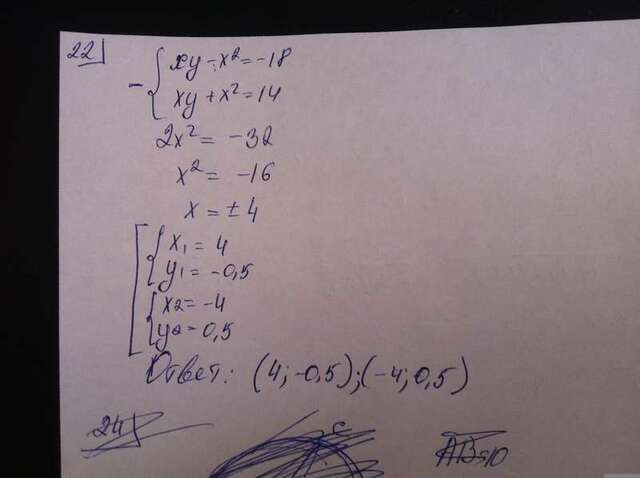 22
- { xy - x² = -18
xy + x² = 14
2x² = -32
x² = -16
x = ± 4
[ { x₁ = 4
y₁ = -0,5
{ x₂ = -4
y₂ = 0,5
Ответ: (4; -0,5); (-4; 0,5)
24
C
AB=10